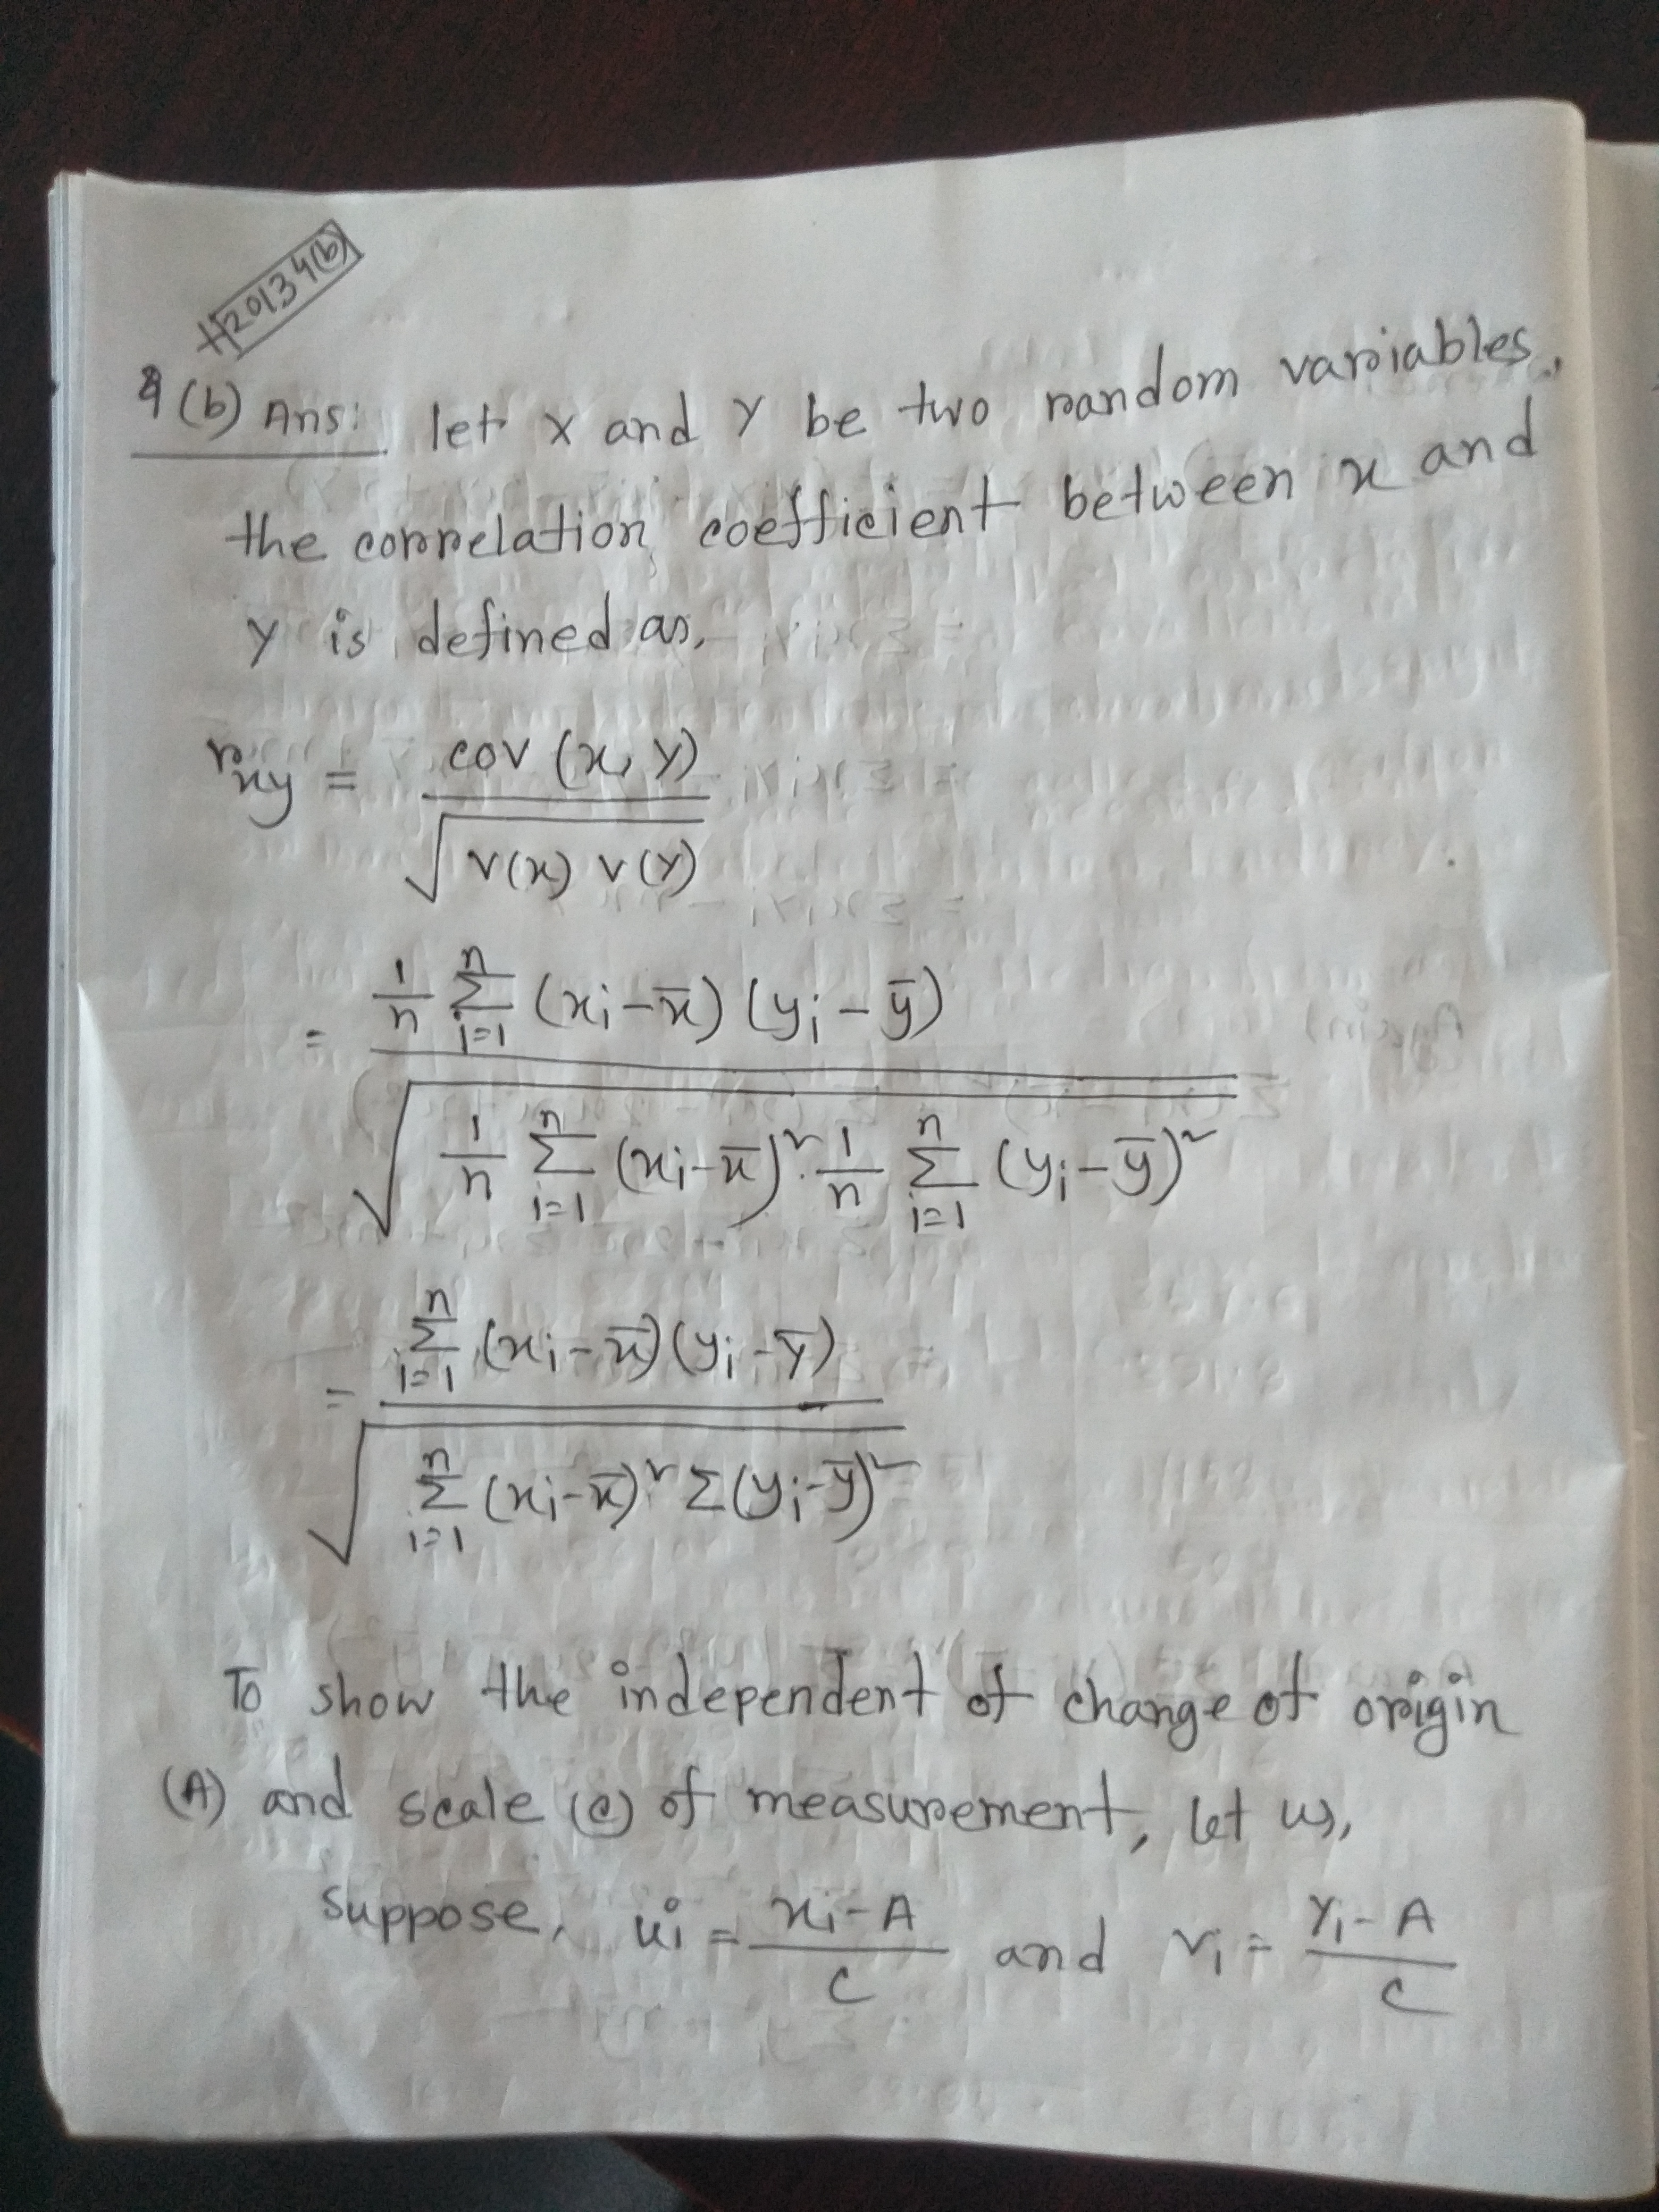 H2013 4(b)
4 (b) Ans: let X and Y be two random variables,
the correlation coefficient between x and
Y is defined as,
r_xy = cov (x, Y) / √(V(x) V(Y))
= 1/n Σ_{i=1}^{n} (xi - x̄) (yi - ȳ) / √(1/n Σ_{i=1}^{n} (xi - x̄)² · 1/n Σ_{i=1}^{n} (yi - ȳ)²)
= Σ_{i=1}^{n} (xi - x̄) (yi - ȳ) / √(Σ_{i=1}^{n} (xi - x̄)² Σ(yi - ȳ)²)
To show the independent of change of origin
(A) and scale (c) of measurement, let us,
suppose, ui = (xi - A) / C and vi = (Yi - A) / C